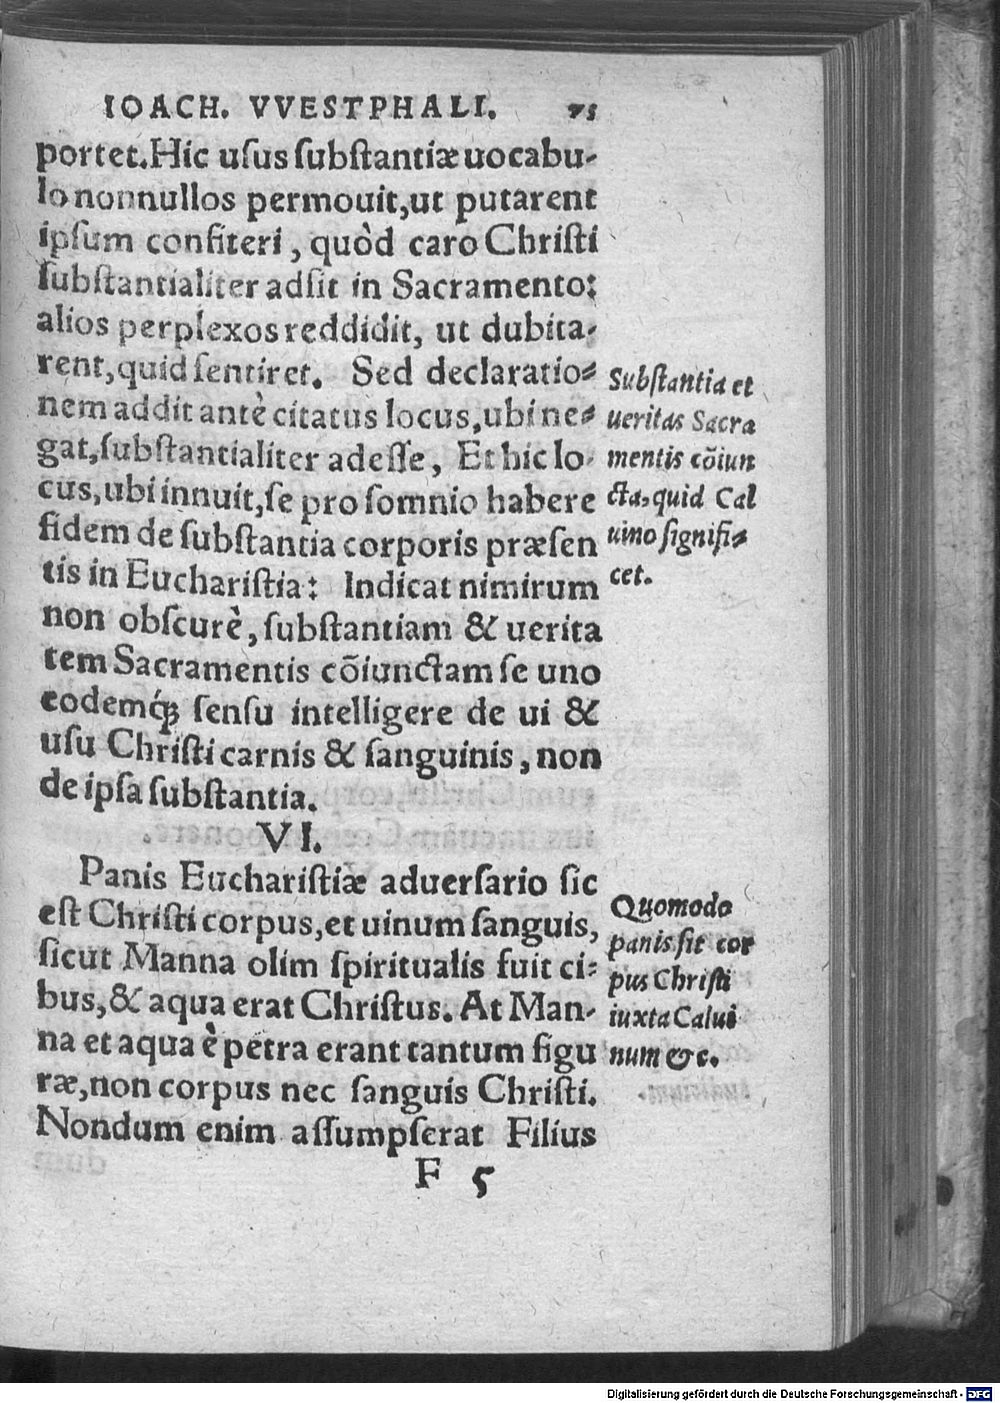 IOACH. VVESTPHALI. 75
portet. Hic uſus ſubſtantiæ uocabu-
lo nonnullos permouit, ut putarent
ipſum confiteri, quòd caro Chriſti
ſubſtantialiter adſit in Sacramento:
alios perplexos reddidit, ut dubita-
rent, quid ſentiret. Sed declaratio-
nem addit antè citatus locus, ubi ne-
gat, ſubſtantialiter adeſſe, Et hic lo-
cus, ubi innuit, ſe pro ſomnio habere
fidem de ſubſtantia corporis præſen
tis in Euchariſtia: Indicat nimirum
non obſcurè, ſubſtantiam & uerita
tem Sacramentis cõiunctam ſe uno
eodemq́; ſenſu intelligere de ui &
uſu Chriſti carnis & ſanguinis, non
de ipſa ſubſtantia.
Subſtantia et
ueritas Sacra
mentis cõiun
cta, quid Cal
uino ſignifi-
cet.
VI.
Panis Euchariſtiæ aduerſario ſic
eſt Chriſti corpus, et uinum ſanguis,
ſicut Manna olim ſpiritualis fuit ci-
bus, & aqua erat Chriſtus. At Man-
na et aqua è petra erant tantum figu
ræ, non corpus nec ſanguis Chriſti.
Nondum enim aſſumpſerat Filius
Quomodo
panis ſit cor
pus Chriſti
iuxta Calui
num &c.
F 5
Digitalisierung gefördert durch die Deutsche Forschungsgemeinschaft - DFG